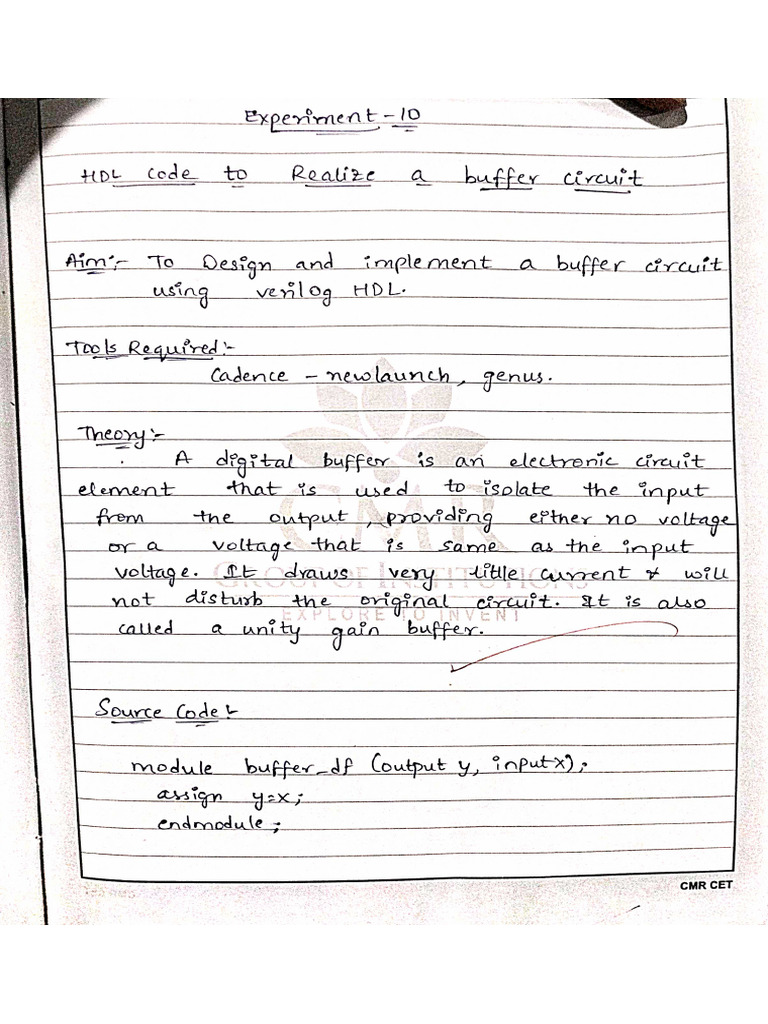 Experiment-10
HDL code to Realize a buffer circuit
Aim:- To Design and implement a buffer circuit
using verilog HDL.
Tools Required:-
Cadence - newlaunch, genus.
Theory:-
A digital buffer is an electronic circuit
element that is used to isolate the input
from the output, providing either no voltage
or a voltage that is same as the input
voltage. It draws very little current & will
not disturb the original circuit. It is also
called a unity gain buffer.
CMR
GROUP OF INSTITUTIONS
EXPLORE TO INVENT
Source Code:-
module buffer_df (output y, input x);
assign y=x;
endmodule;
CMR CET